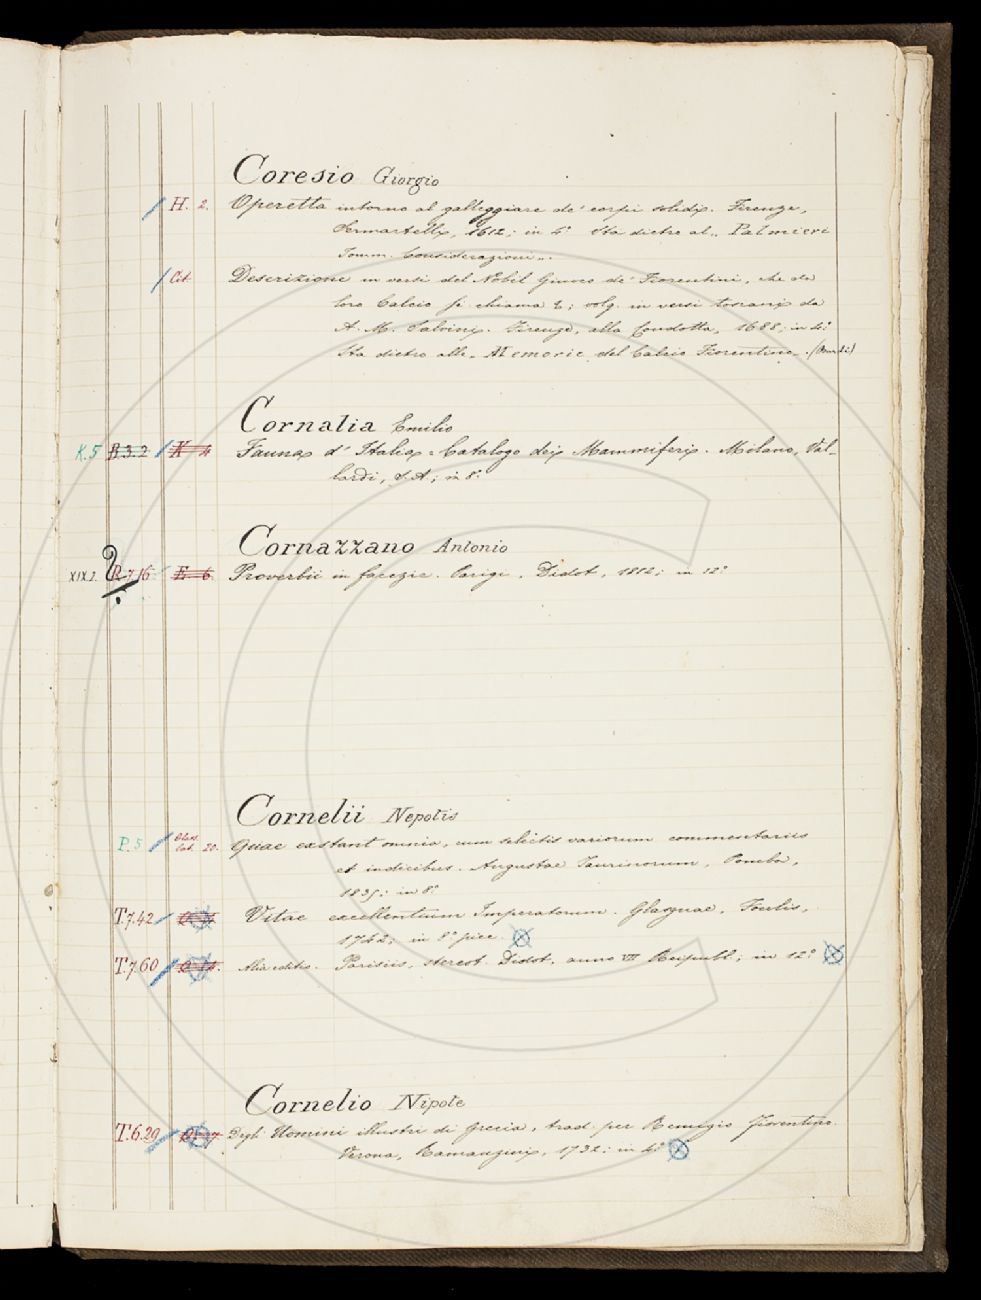 Coresio Giorgio
H. 2. Operetta intorno al galleggiare de' corpi solidi. Firenze,
Sermartelli, 1612; in 4° Sta dietro al „ Palmieri
Tomm. Considerazioni „.
Cit. Descrizione in versi del Nobil Giuoco de' Fiorentini, che da
loro Calcio si chiama &; volg. in versi toscani da
A. M. Salvini. Firenze, alla Condotta, 1688; in 4°.
Sta dietro alle „ Memorie del Calcio Fiorentino „. (Bardi)
Cornalia Emilio
K.5 R.3.2 K 4 Fauna d' Italia = Catalogo dei Mammiferi. Milano, Val-
lardi, S. A.; in 8°.
Cornazzano Antonio
XIX.2. R.7.16 E. 6. Proverbii in facezie. Parigi, Didot, 1812; in 12°
Cornelii Nepotis
P. 5 Class. Lat. 20. Quae exstant omnia, cum selectis variorum commentariis
et indicibus. Augustae Taurinorum, Pomba,
1835; in 8°
T.7.42 Vitae excellentium Imperatorum. Glasguae, Foulis,
1742; in 8° picc.
T.7.60 Alia editio. Parisiis, stereot. Didot, anno VIII Reipubl; in 12°
Cornelio Nipote
T.6.29 Degli Uomini illustri di Grecia, trad. per Remigio Fiorentino.
Verona, Ramanzini, 1732; in 4°